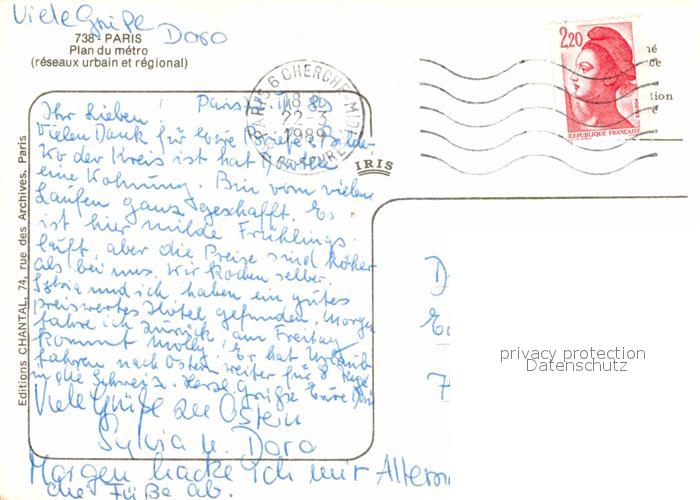 Viele Grüße
Doro
738 - PARIS
Plan du métro
(réseaux urbain et régional)
PARIS 6 CHERCHE-MIDI
18 H
22-3
1989
2,20
REPUBLIQUE FRANÇAISE
IRIS
Editions CHANTAL, 74, rue des Archives, Paris
Ihr Lieben! Paris
Vielen Dank für Eure Briefe + Bilder
Wo der Kreis ist hat
eine Wohnung. Bin vom vielen
Laufen ganz geschafft. Es
ist hier milde Frühlings-
luft, aber die Preise sind höher
als bei uns. Wir kochen selber.
Sylvia und ich haben ein gutes
preiswertes Hotel gefunden. Morgen
fahre ich zurück, am Freitag
kommt Molly! Er hat Urlaub
fahren nach Ostern weiter für 8 Tage
in die Schweiz. Herzl. Grüße Eure
Viele Grüße zu Ostern
Sylvia u. Doro
Morgen hacke ich mir
die Füße ab.
privacy protection
Datenschutz